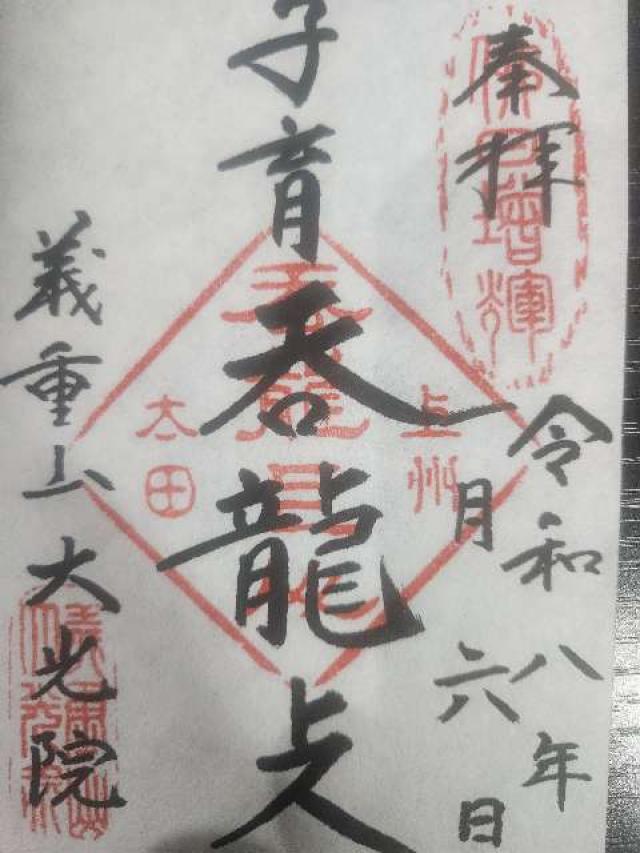 奉拝
佛日増輝
令和八年
一月六日
子育呑龍上人
上州
太田
義重山大光院